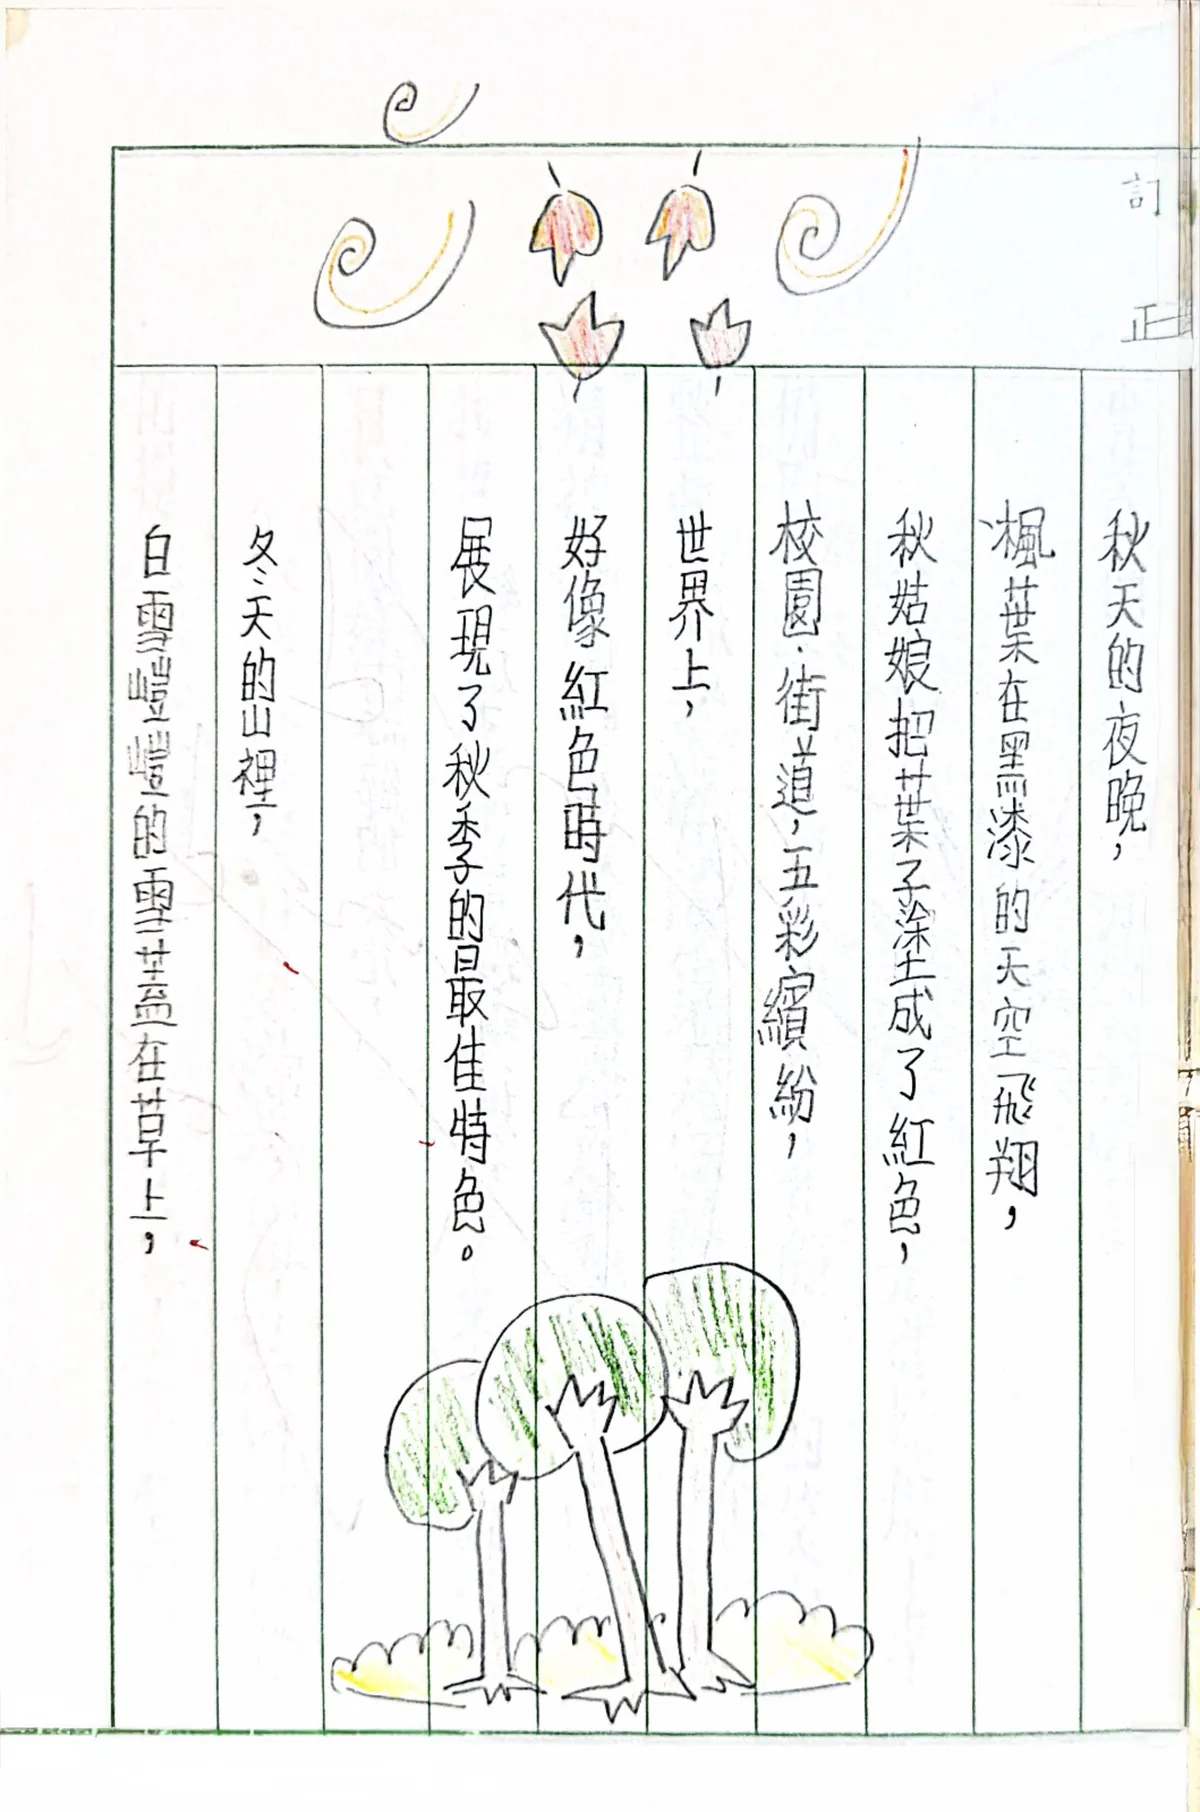 訂正
秋天的夜晚，
楓葉在黑漆的天空飛翔，
秋姑娘把葉子塗成了紅色，
校園．街道，五彩繽紛，
世界上，
好像紅色時代，
展現了秋季的最佳特色。
冬天的山裡，
白雪皚皚的雪蓋在草上，